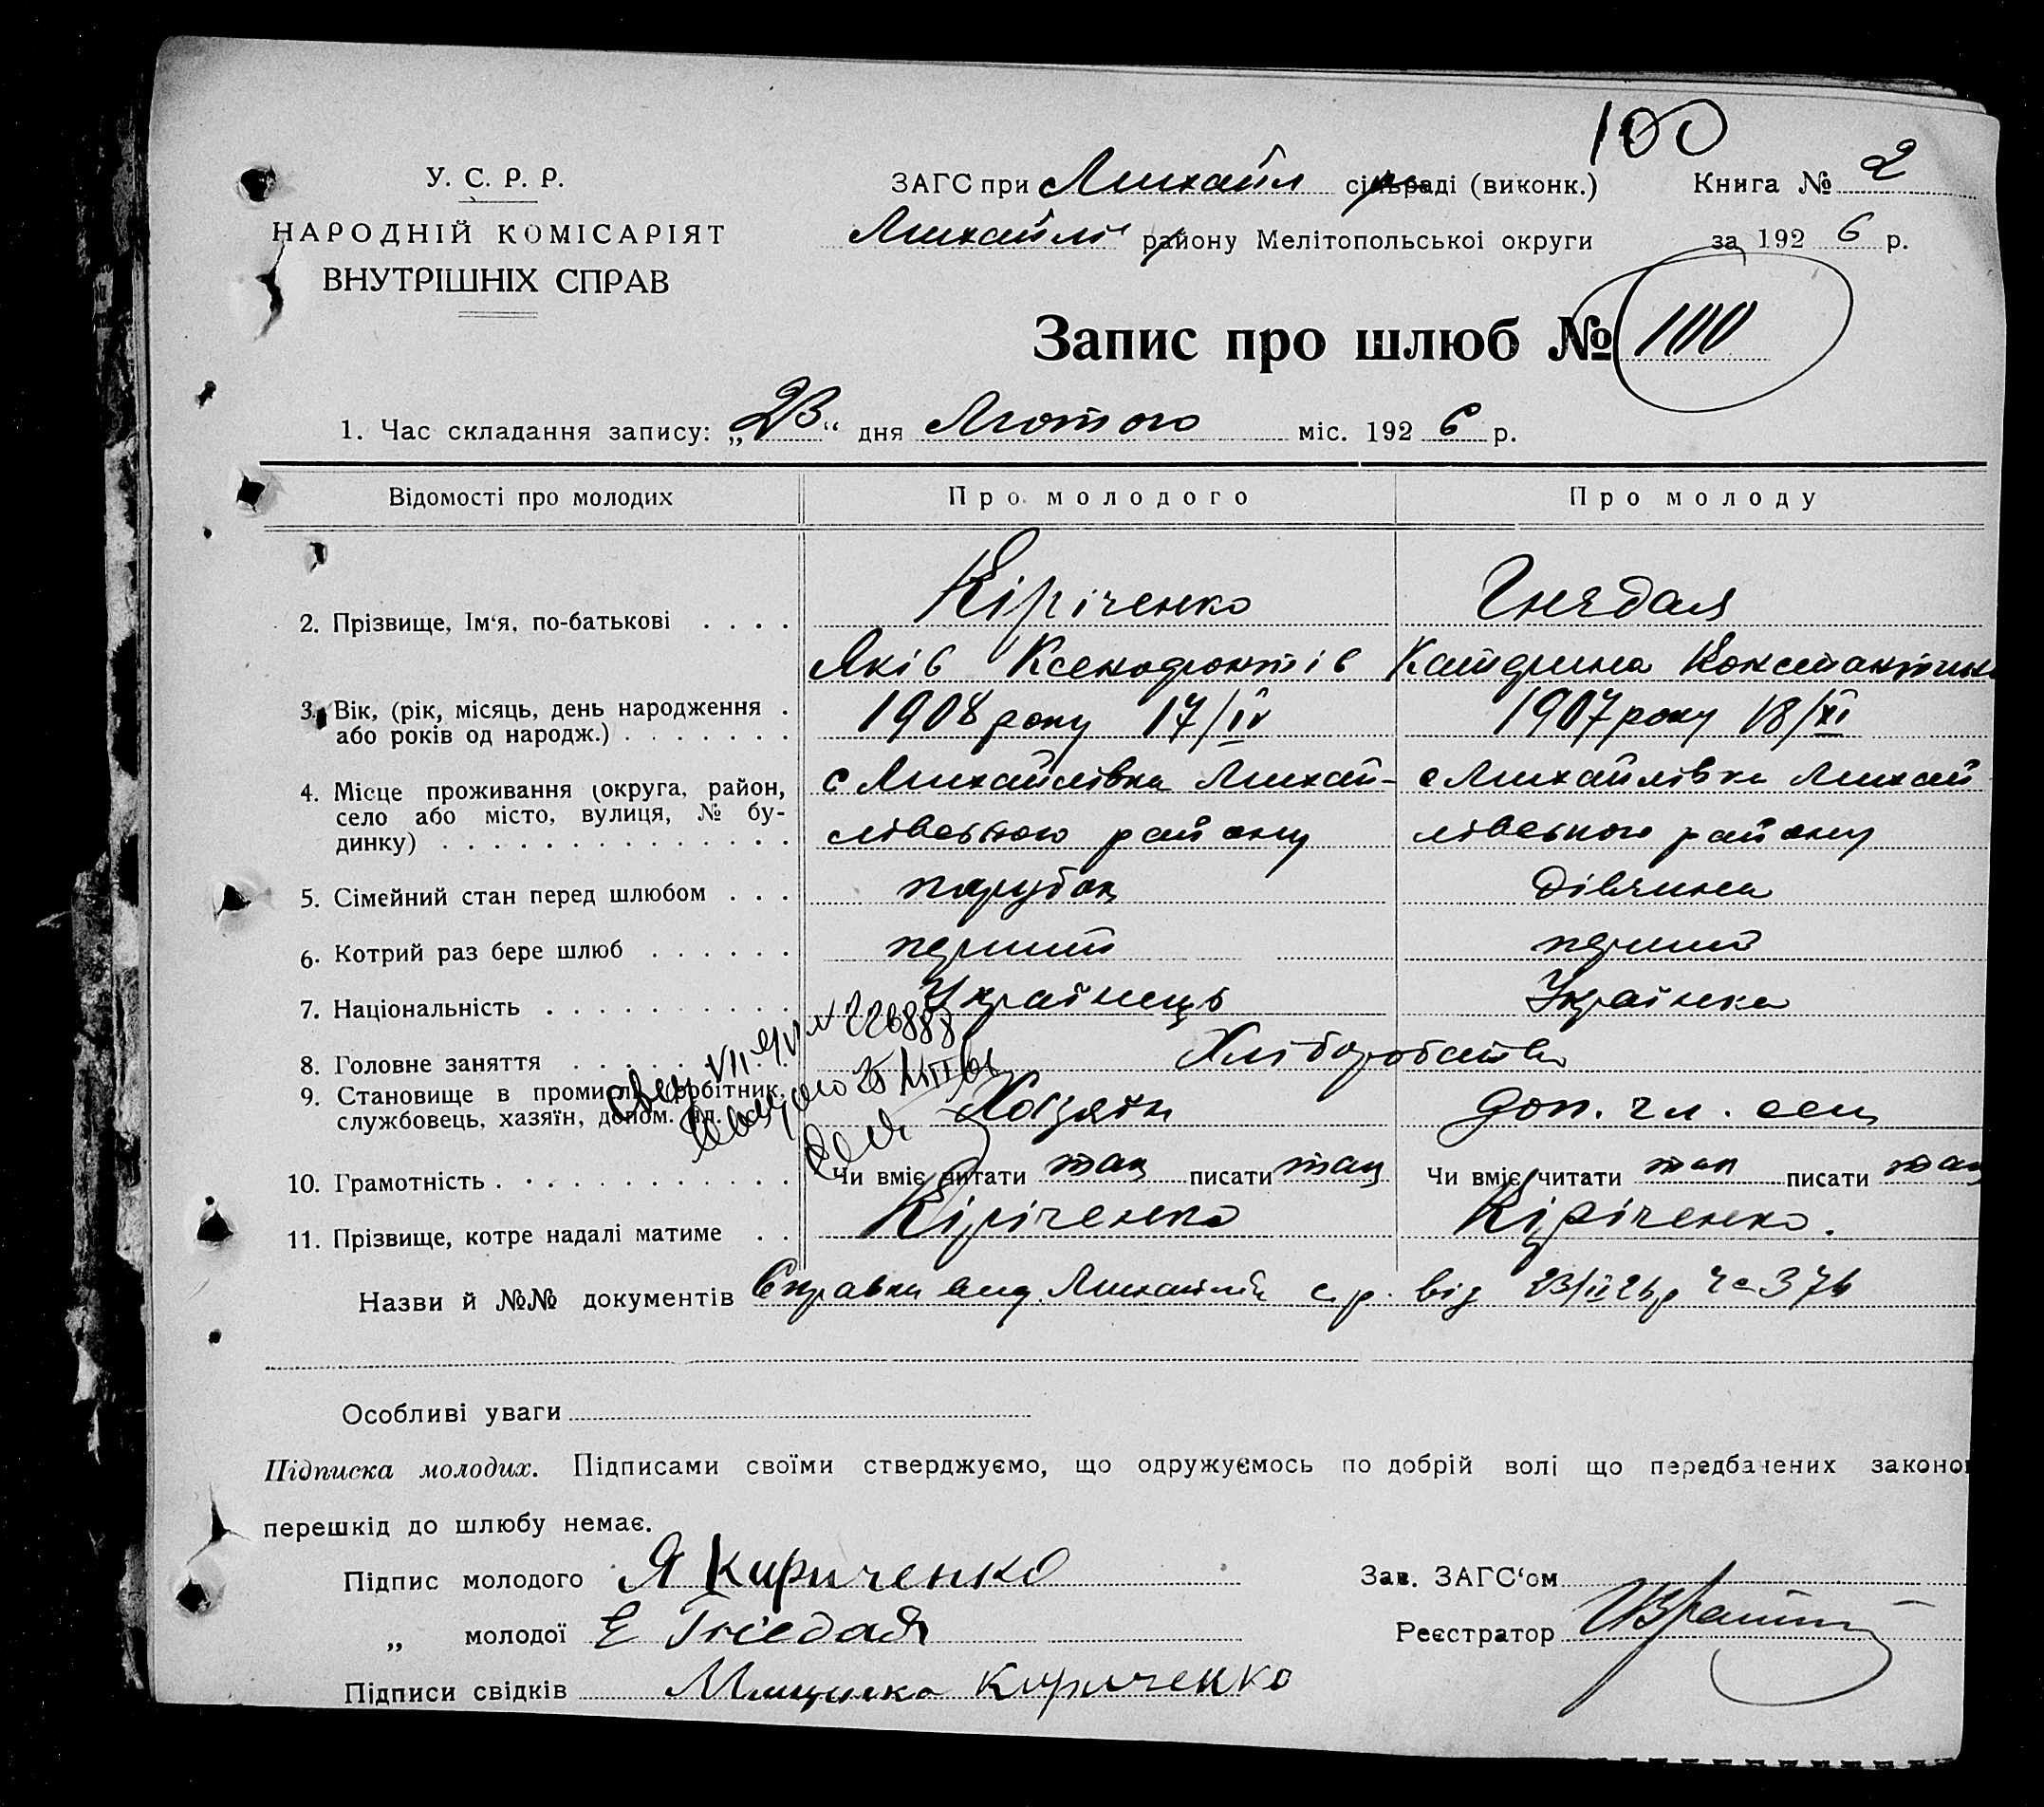 100
У. С. Р. Р.
НАРОДНІЙ КОМІСАРІЯТ
ВНУТРІШНІХ СПРАВ
ЗАГС при Михайл сільраді (виконк.) Книга № 2
Михайлів району Мелітопольської округи за 1926 р.
Запис про шлюб № 100
1. Час складання запису: „23“ дня Лютого міс. 1926 р.
Відомості про молодих Про молодого Про молоду
2. Прізвище, Ім‘я, по-батькові . . . . Кіріченко Гнядая
Яків Ксенофонтів Катерина Константінів
3. Вік, (рік, місяць, день народження . 1908 року 17/IV 1907 року 18/XI
або років од народж.) . . . . . . .
4. Місце проживання (округа, район, с Михайлівка Михай- с Михайлівка Михай
село або місто, вулиця, № бу-
динку) . . . . . . . . . . . . . . лівського району лівського району
5. Сімейний стан перед шлюбом . . . парубок дівчина
6. Котрий раз бере шлюб . . . . . . перший перший
7. Національність . . . . . . . . . . Українець Українка
8. Головне заняття . . . . . . Хліборобство
9. Становище в промислі (робітник,
службовець, хазяїн, допом. чл. Хазяїн доп. чл. сем
10. Грамотність . . . . . . . . . . . . Чи вміє читати так писати так Чи вміє читати так писати так
11. Прізвище, котре надалі матиме . . Кіріченко Кіріченко.
Назви й №№ документів Справки вид. Михайлів с.р. від 23/II 26р Ч-376
Особливі уваги
Підписка молодих. Підписами своїми стверджуємо, що одружуємось по добрій волі що передбачених законо
перешкід до шлюбу немає.
Підпис молодого Я Кириченко Зав. ЗАГС‘ом
„ молодої Е Гнедая Реєстратор
Підписи свідків Кириченко